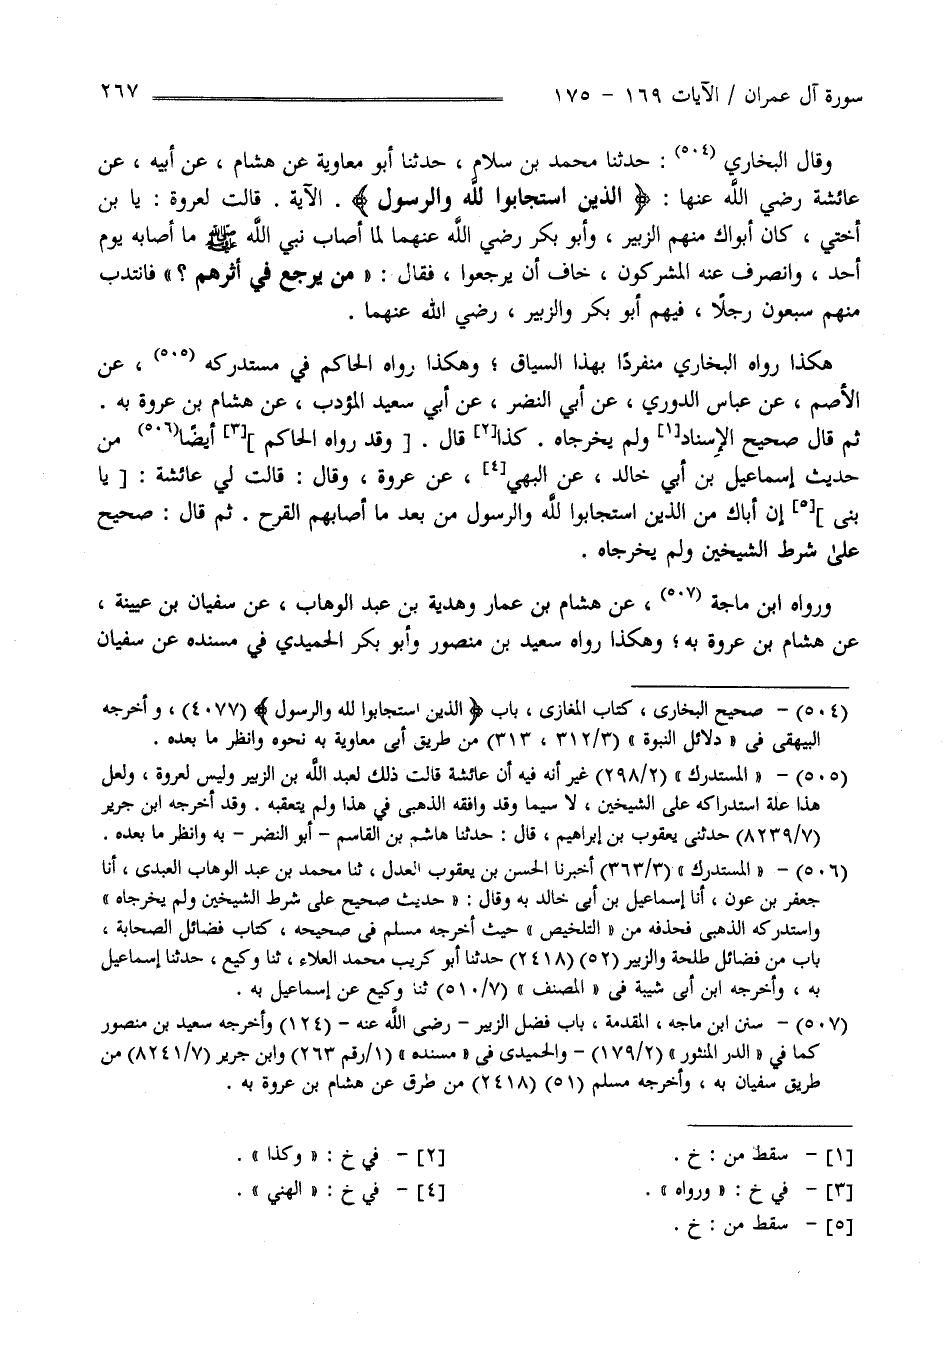 سورة آل عمران / الآيات ١٦٩ - ١٧٥ ٢٦٧
وقال البخاري (٥٠٤) : حدثنا محمد بن سلام ، حدثنا أبو معاوية عن هشام ، عن أبيه ، عن
عائشة رضي اللَّه عنها : ﴿ الذين استجابوا للَّه والرسول ﴾ . الآية . قالت لعروة : يا بن
أختي ، كان أبواك منهم الزبير ، وأبو بكر رضي اللَّه عنهما لما أصاب نبي اللَّه ﷺ ما أصابه يوم
أحد ، وانصرف عنه المشركون ، خاف أن يرجعوا ، فقال : « من يرجع في أثرهم ؟ » فانتدب
منهم سبعون رجلًا ، فيهم أبو بكر والزبير ، رضي الله عنهما .
هكذا رواه البخاري منفردًا بهذا السياق ؛ وهكذا رواه الحاكم في مستدركه (٥٠٥) ، عن
الأصم ، عن عباس الدوري ، عن أبي النضر ، عن أبي سعيد المؤدب ، عن هشام بن عروة به .
ثم قال صحيح الإسناد[١] ولم يخرجاه . كذا[٢] قال . [ وقد رواه الحاكم ][٣] أيضًا(٥٠٦) من
حديث إسماعيل بن أبي خالد ، عن البهي[٤] ، عن عروة ، وقال : قالت لي عائشة : [ يا
بنى ][٥] إن أباك من الذين استجابوا للَّه والرسول من بعد ما أصابهم القرح . ثم قال : صحيح
علىٰ شرط الشيخين ولم يخرجاه .
ورواه ابن ماجة (٥٠٧) ، عن هشام بن عمار وهدية بن عبد الوهاب ، عن سفيان بن عيينة ،
عن هشام بن عروة به ؛ وهكذا رواه سعيد بن منصور وأبو بكر الحميدي في مسنده عن سفيان
(٥٠٤) - صحيح البخارى ، كتاب المغازى ، باب ﴿ الذين استجابوا لله والرسول ﴾ (٤٠٧٧) ، و أخرجه
البيهقى فى « دلائل النبوة » (٣١٢/٣ ، ٣١٣) من طريق أبى معاوية به نحوه وانظر ما بعده .
(٥٠٥) - « المستدرك » (٢٩٨/٢) غير أنه فيه أن عائشة قالت ذلك لعبد اللَّه بن الزبير وليس لعروة ، ولعل
هذا علة استدراكه على الشيخين ، لا سيما وقد وافقه الذهبى في هذا ولم يتعقبه . وقد أخرجه ابن جرير
(٨٢٣٩/٧) حدثنى يعقوب بن إبراهيم ، قال : حدثنا هاشم بن القاسم - أبو النضر - به وانظر ما بعده .
(٥٠٦) - « المستدرك » (٣٦٣/٣) أخبرنا الحسن بن يعقوب العدل ، ثنا محمد بن عبد الوهاب العبدى ، أنا
جعفر بن عون ، أنا إسماعيل بن أبى خالد به وقال : « حديث صحيح على شرط الشيخين ولم يخرجاه »
واستدركه الذهبى فحذفه من « التلخيص » حيث أخرجه مسلم فى صحيحه ، كتاب فضائل الصحابة ،
باب من فضائل طلحة والزبير (٥٢) (٢٤١٨) حدثنا أبو كريب محمد العلاء ، ثنا وكيع ، حدثنا إسماعيل
به ، وأخرجه ابن أبى شيبة فى « المصنف » (٥١٠/٧) ثنا وكيع عن إسماعيل به .
(٥٠٧) - سنن ابن ماجه ، المقدمة ، باب فضل الزبير - رضي اللَّه عنه - (١٢٤) وأخرجه سعيد بن منصور
كما في « الدر المنثور » (١٧٩/٢) - والحميدى فى « مسنده » (١/رقم ٢٦٣) وابن جرير (٨٢٤١/٧) من
طريق سفيان به ، وأخرجه مسلم (٥١) (٢٤١٨) من طرق عن هشام بن عروة به .
[١] - سقط من : خ . [٢] - في خ : « وكذا » .
[٣] - في خ : « ورواه » . [٤] - في خ : « الهني » .
[٥] - سقط من : خ .